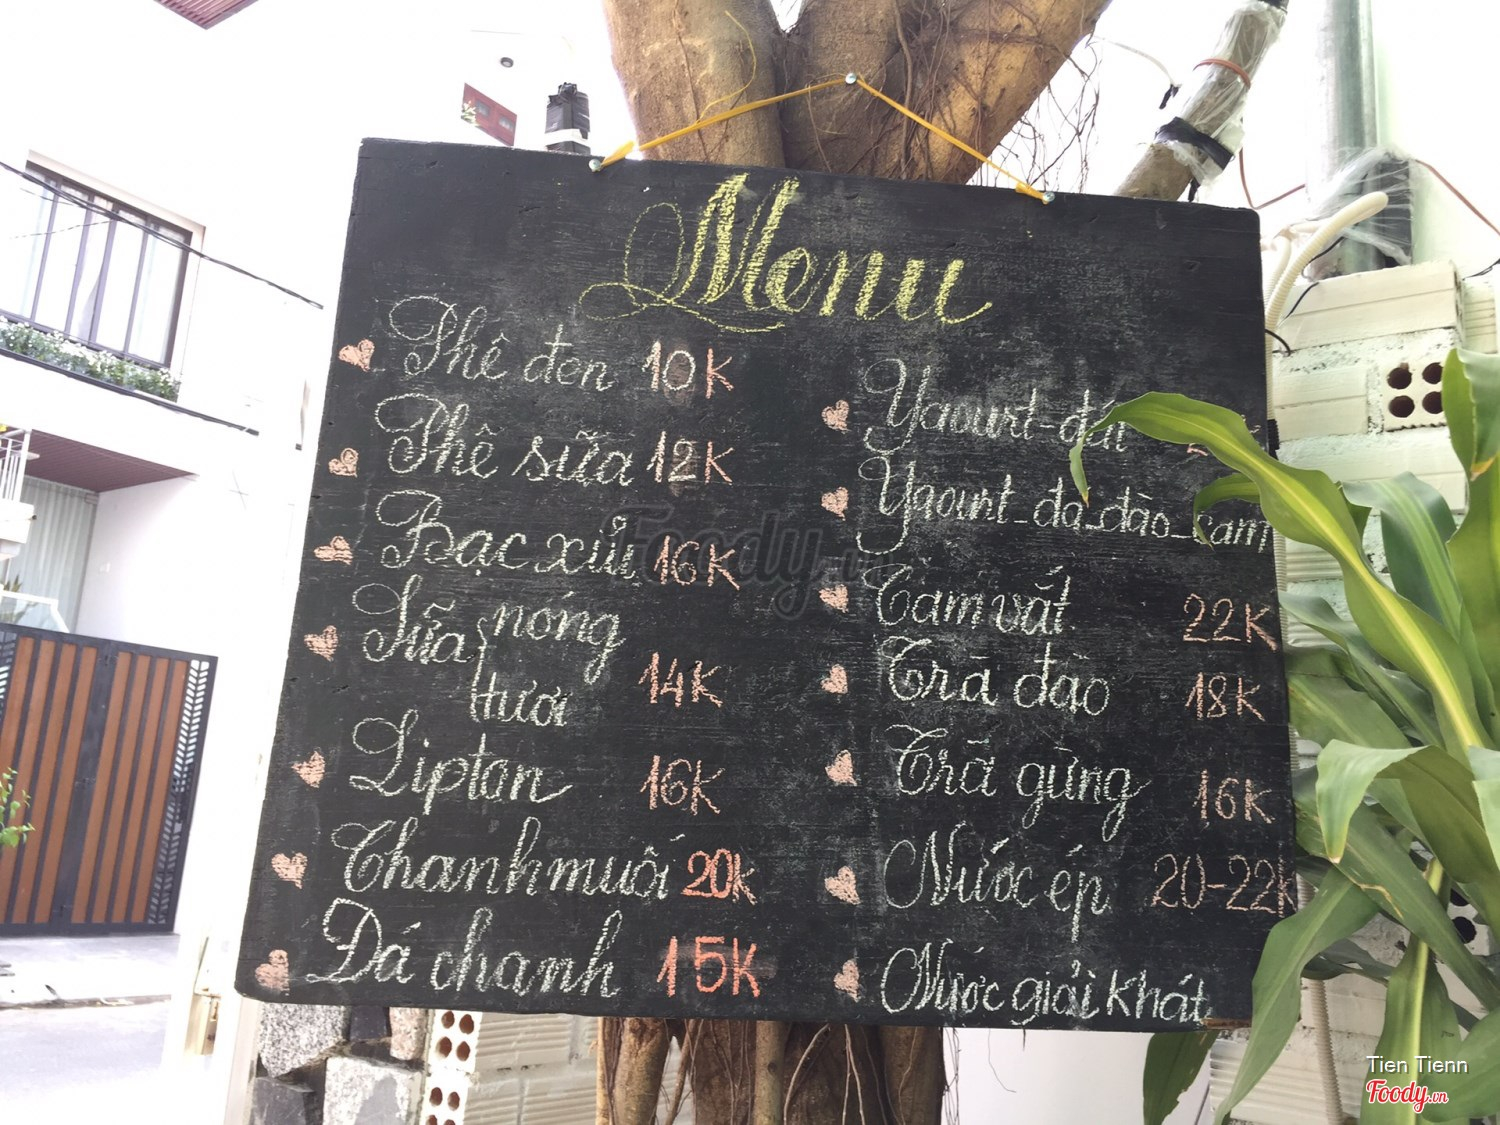 Menu
Phê đen 10K
Phê sữa 12K
Bạc xủi 16K
Sữa nóng
tươi 14K
Liptan 16K
Chanh muối 20K
Đá chanh 15K
Yaourt-đá
Yaourt_đá_đào_cam
Cam vắt 22K
Trà đào 18K
Trà gừng 16K
Nước ép 20-22K
Nước giải khát
Foody.vn
Tien Tienn
Foody.vn